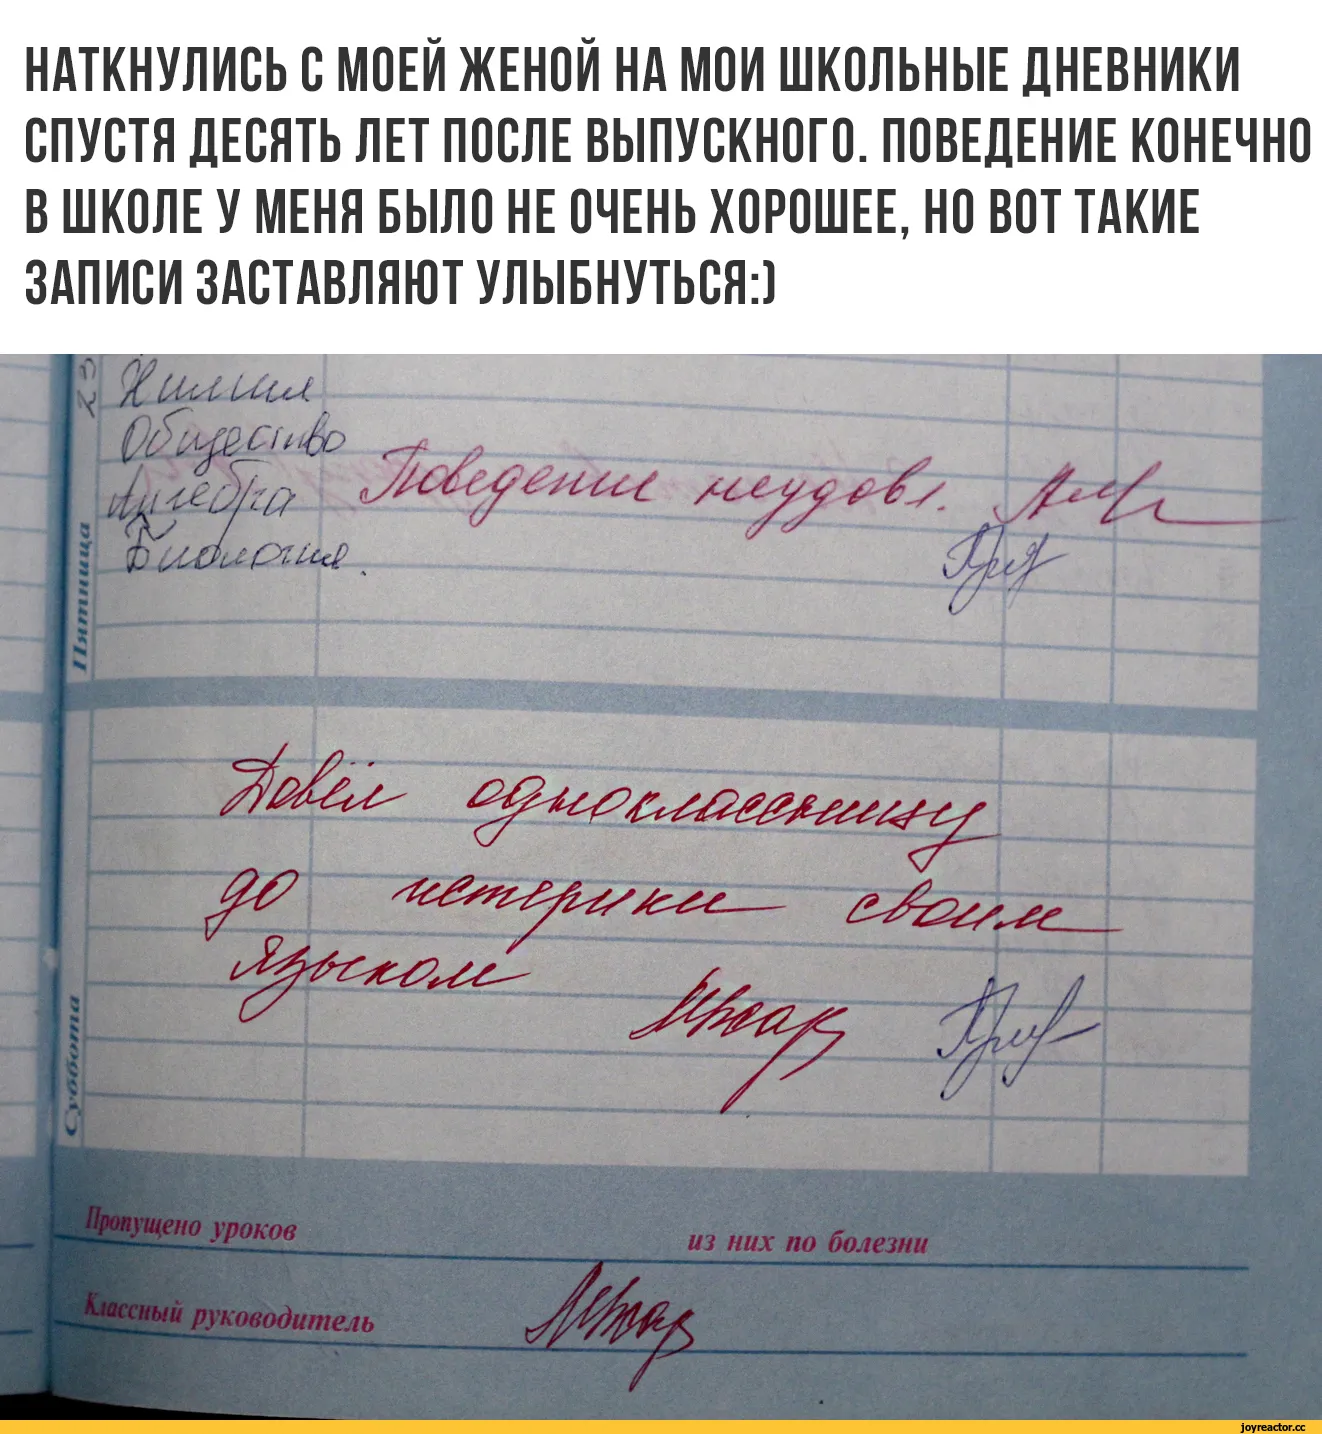 НАТКНУЛИСЬ С МОЕЙ ЖЕНОЙ НА МОИ ШКОЛЬНЫЕ ДНЕВНИКИ
СПУСТЯ ДЕСЯТЬ ЛЕТ ПОСЛЕ ВЫПУСКНОГО. ПОВЕДЕНИЕ КОНЕЧНО
В ШКОЛЕ У МЕНЯ БЫЛО НЕ ОЧЕНЬ ХОРОШЕЕ, НО ВОТ ТАКИЕ
ЗАПИСИ ЗАСТАВЛЯЮТ УЛЫБНУТЬСЯ:)
23
Химия
Общество
Алгебра Поведение неудовл.
Биология.
Пятница
Довёл одноклассницу
до истерики своим
языком
Суббота
Пропущено уроков из них по болезни
Классный руководитель
joyreactor.cc